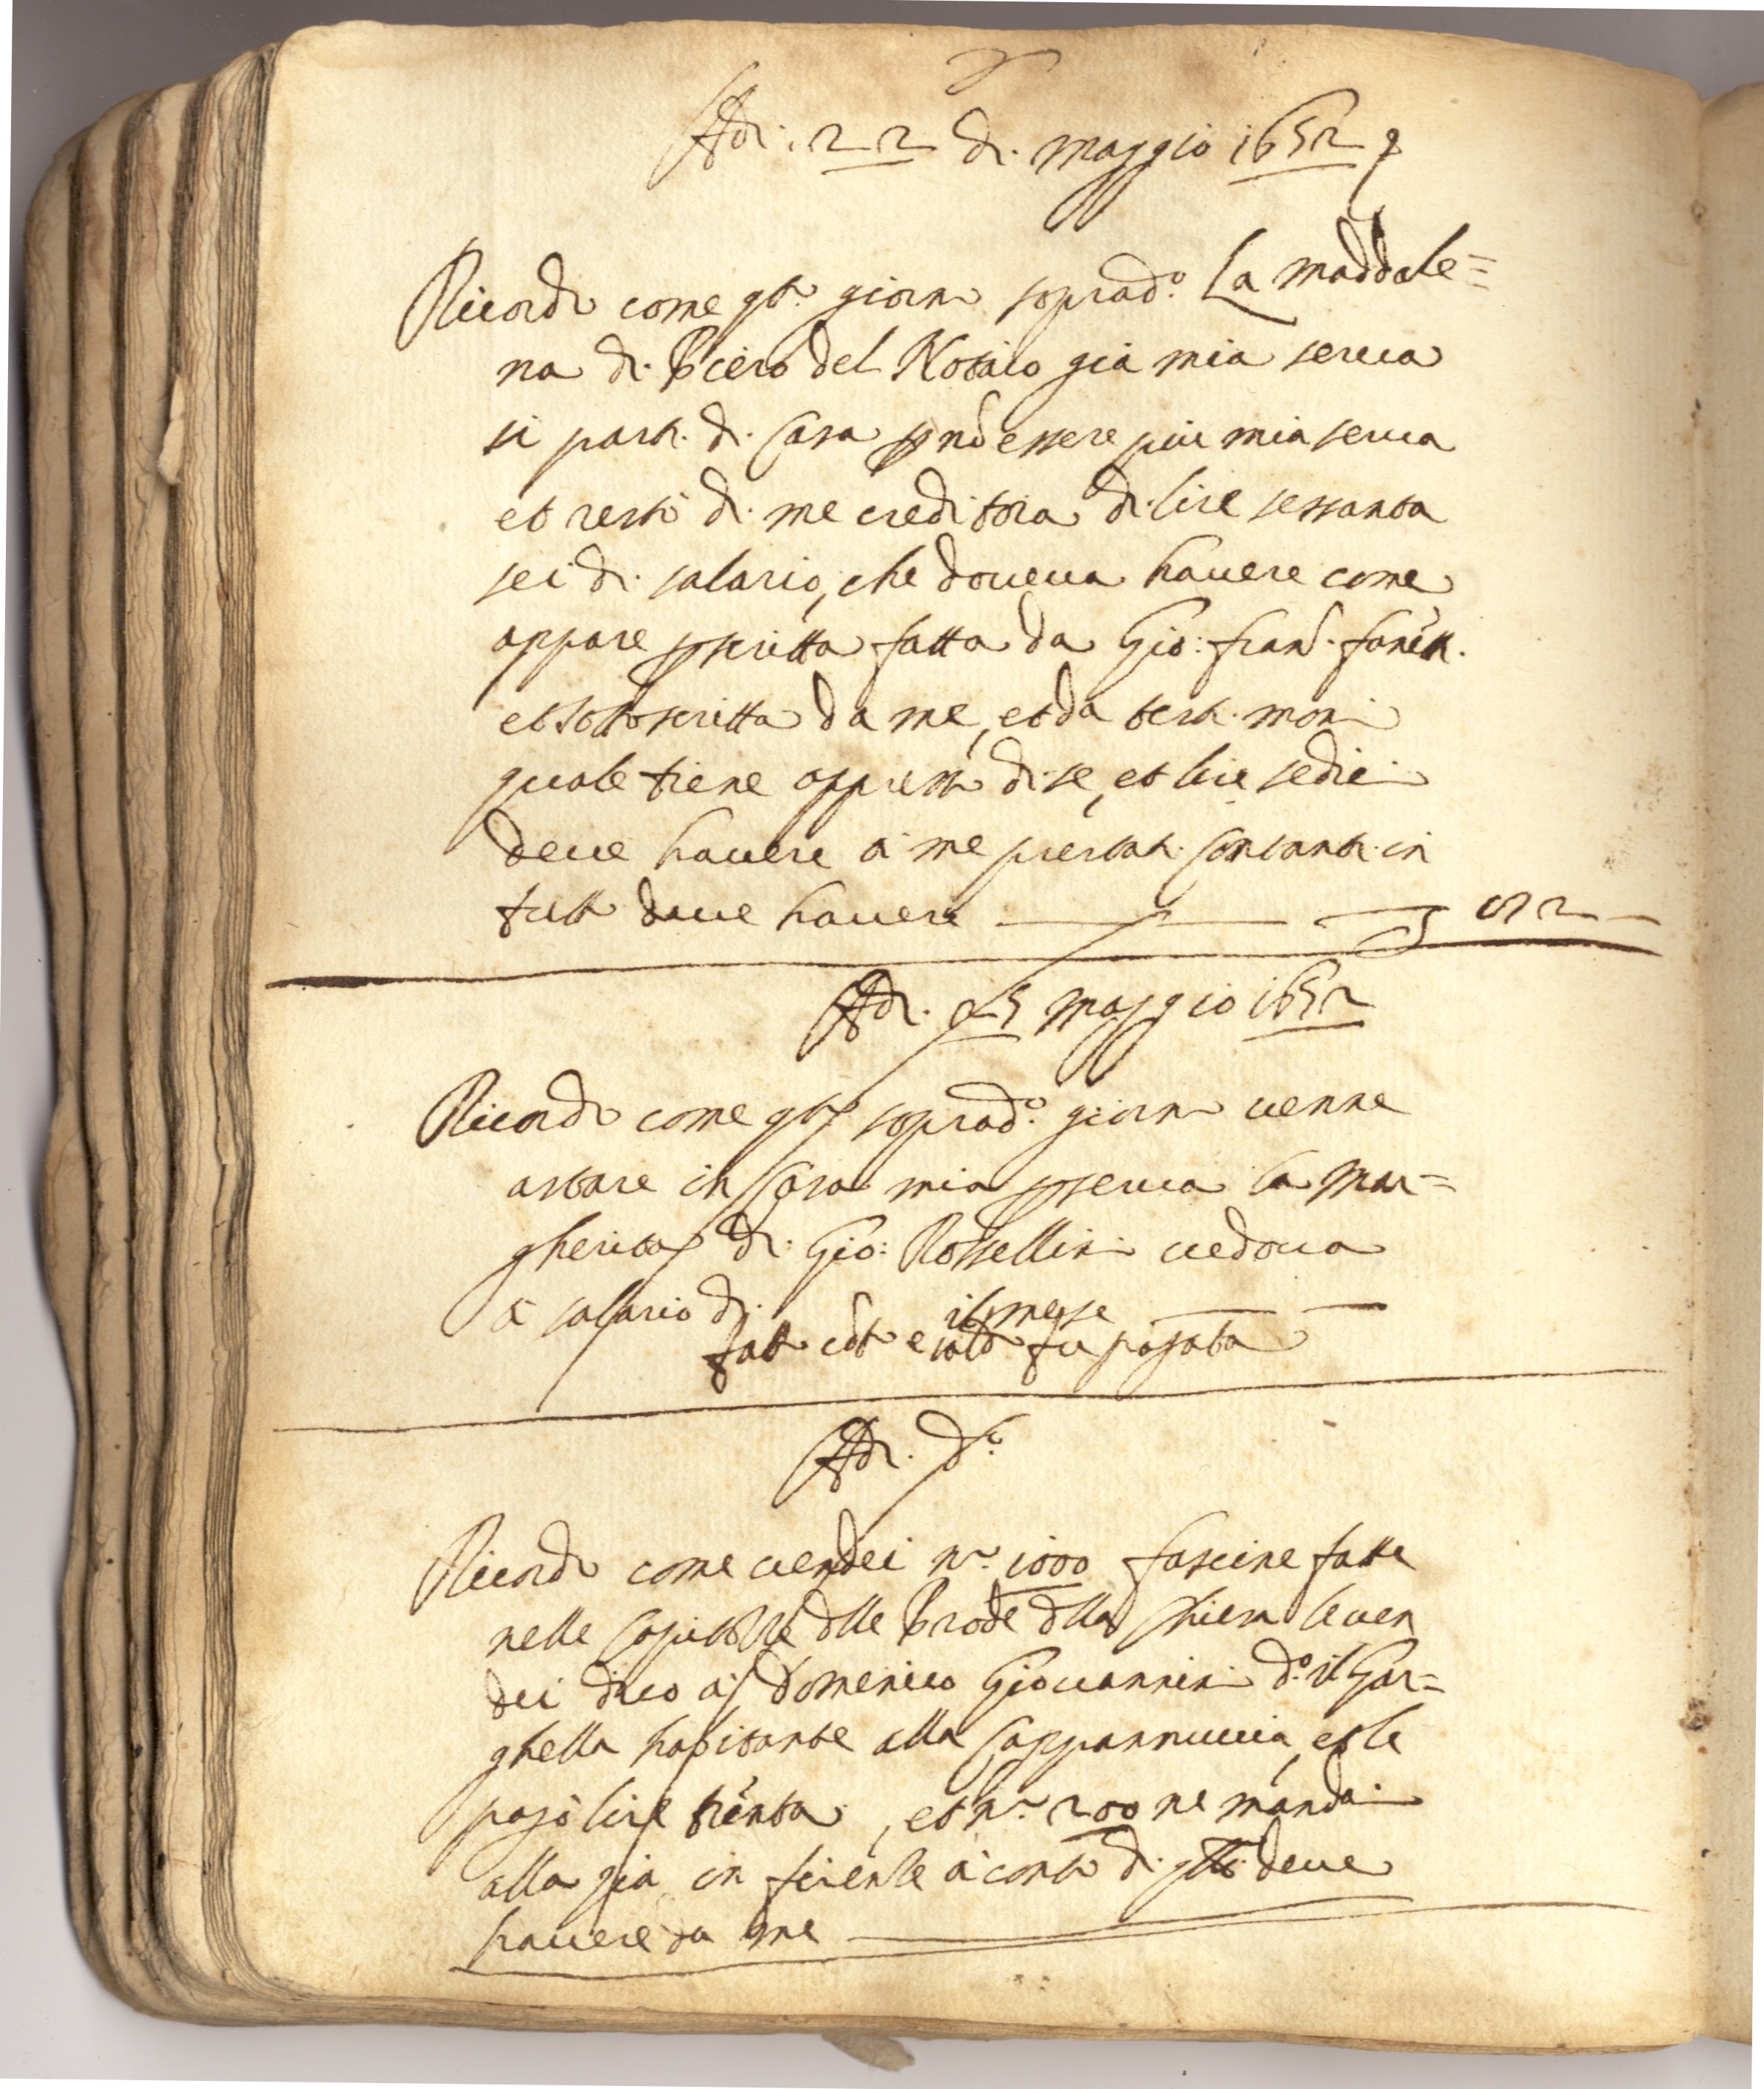 Adi. 22 di. maggio 1652
Ricordo come qto. giorno soprad.o La maddale=
na di. Piero del Notaio già mia serua
si parti. di. casa p nō essere più mia serua
et restò di. me creditora di. lire sessanta
sei di. salario, che doueua hauere come
appare p scritta fatta da Gio: Fran.
et sottoscritta da me, et da testi.moni
quale tiene appresso di. se, et lire sedici
deue hauere à me prestati. contanti. in
tutto deue hauere
Adi. 25 maggio 1652
Ricordo come qto soprad.o giorno uenne
astare in casa mia p serua la Mar=
gherita di. Gio: Rossellini uedoua
à salario di. il mese
fatto cōto e saldo fu pagata
Adi. d.o
Ricordo come uendei n.o 1000 fascine fatte
nelle dlle Prode dlla le uen
dei dico à Domenico Giouannini d.o il Gar=
ghella habitante alla Cappannuccia, et le
pagò lire trenta, et n.o 200 ne mandai
alla già in firenze à conto di. deue
hauere da me